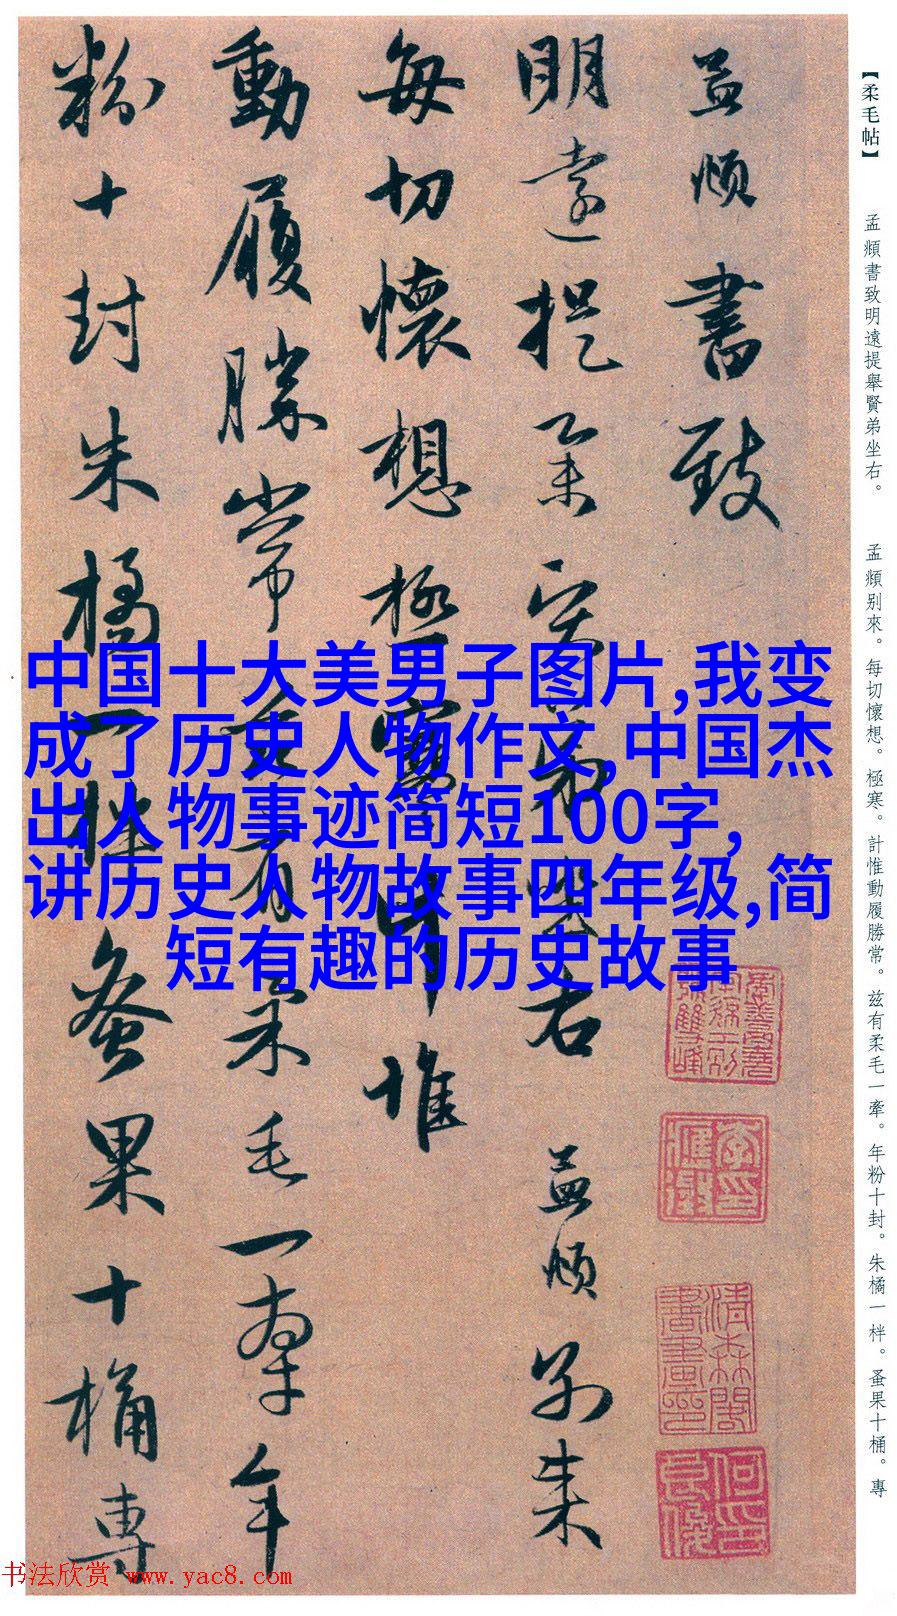 【柔毛帖】
孟頫書致明遠提舉賢弟坐右。
孟頫别來。每切懷想。極寒。計惟動履勝常。兹有柔毛一牽。年粉十封。朱橘一柈。蚤果十桶。專
孟頫書致
明遠提舉賢弟坐右 孟頫別來
每切懷想極寒計惟
動履勝常茲有柔毛一牽年
粉十封朱橘一柈蚤果十桶專
中国十大美男子图片,我变
成了历史人物作文,中国杰
出人物事迹简短100字,
讲历史人物故事四年级,简
短有趣的历史故事
书法欣赏 www.yac8.com